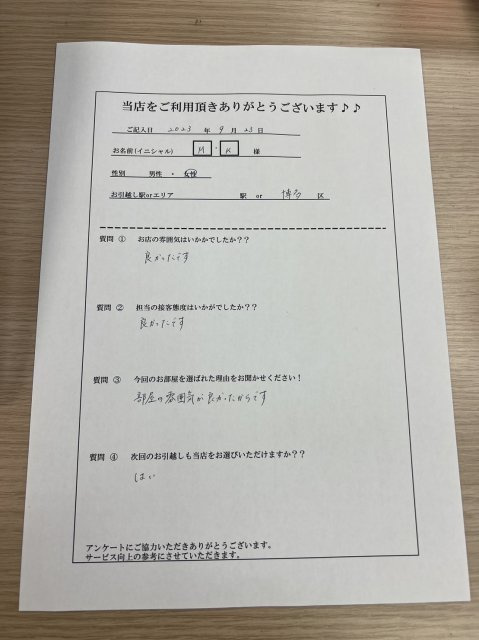 当店をご利用頂きありがとうございます♪♪
ご記入日 2023 年 9 月 23 日
お名前(イニシャル) M ・ K 様
性別 男性 ・ 女性
お引越し駅orエリア 駅 or 博多 区
質問 ① お店の雰囲気はいかかでしたか??
良かったです
質問 ② 担当の接客態度はいかがでしたか??
良かったです
質問 ③ 今回のお部屋を選ばれた理由をお聞かせください!
部屋の雰囲気が良かったからです
質問 ④ 次回のお引越しも当店をお選びいただけますか??
はい
アンケートにご協力いただきありがとうございます。
サービス向上の参考にさせていただきます。